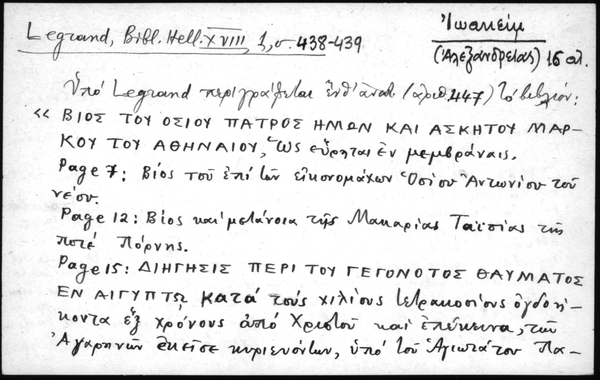 Legrand, Bibl. Hell. XVIII, 1, σ. 438-439
Ἰωακείμ
(Ἀλεξανδρείας) 16 αἰ.
Ὑπό Legrand περιγράφεται (ἀριθ. 447) τό βιβλίον:
« ΒΙΟΣ ΤΟΥ ΟΣΙΟΥ ΠΑΤΡΟΣ ΗΜΩΝ ΚΑΙ ΑΣΚΗΤΟΥ ΜΑΡ-
ΚΟΥ ΤΟΥ ΑΘΗΝΑΙΟΥ, Ὡς εὕρηται ἐν μεμβράναις.
Page 7: Βίος τοῦ ἐπί τῶν εἰκονομάχων Ὁσίου Ἀντωνίου τοῦ
νέου.
Page 12: Βίος καί μετάνοια τῆς Μακαρίας Ταϊσίας τῆς
ποτέ Πόρνης.
Page 15: ΔΙΗΓΗΣΙΣ ΠΕΡΙ ΤΟΥ ΓΕΓΟΝΟΤΟΣ ΘΑΥΜΑΤΟΣ
ΕΝ ΑΙΓΥΠΤΩ κατά τούς χιλίους τετρακοσίους ὀγδοή-
κοντα ἕξ χρόνους ἀπό Χριστοῦ καί ἐπέκεινα, τῶν
Ἀγαρηνῶν ἐκεῖσε κυριευόντων, ὑπό τοῦ Ἁγιωτάτου Πα-